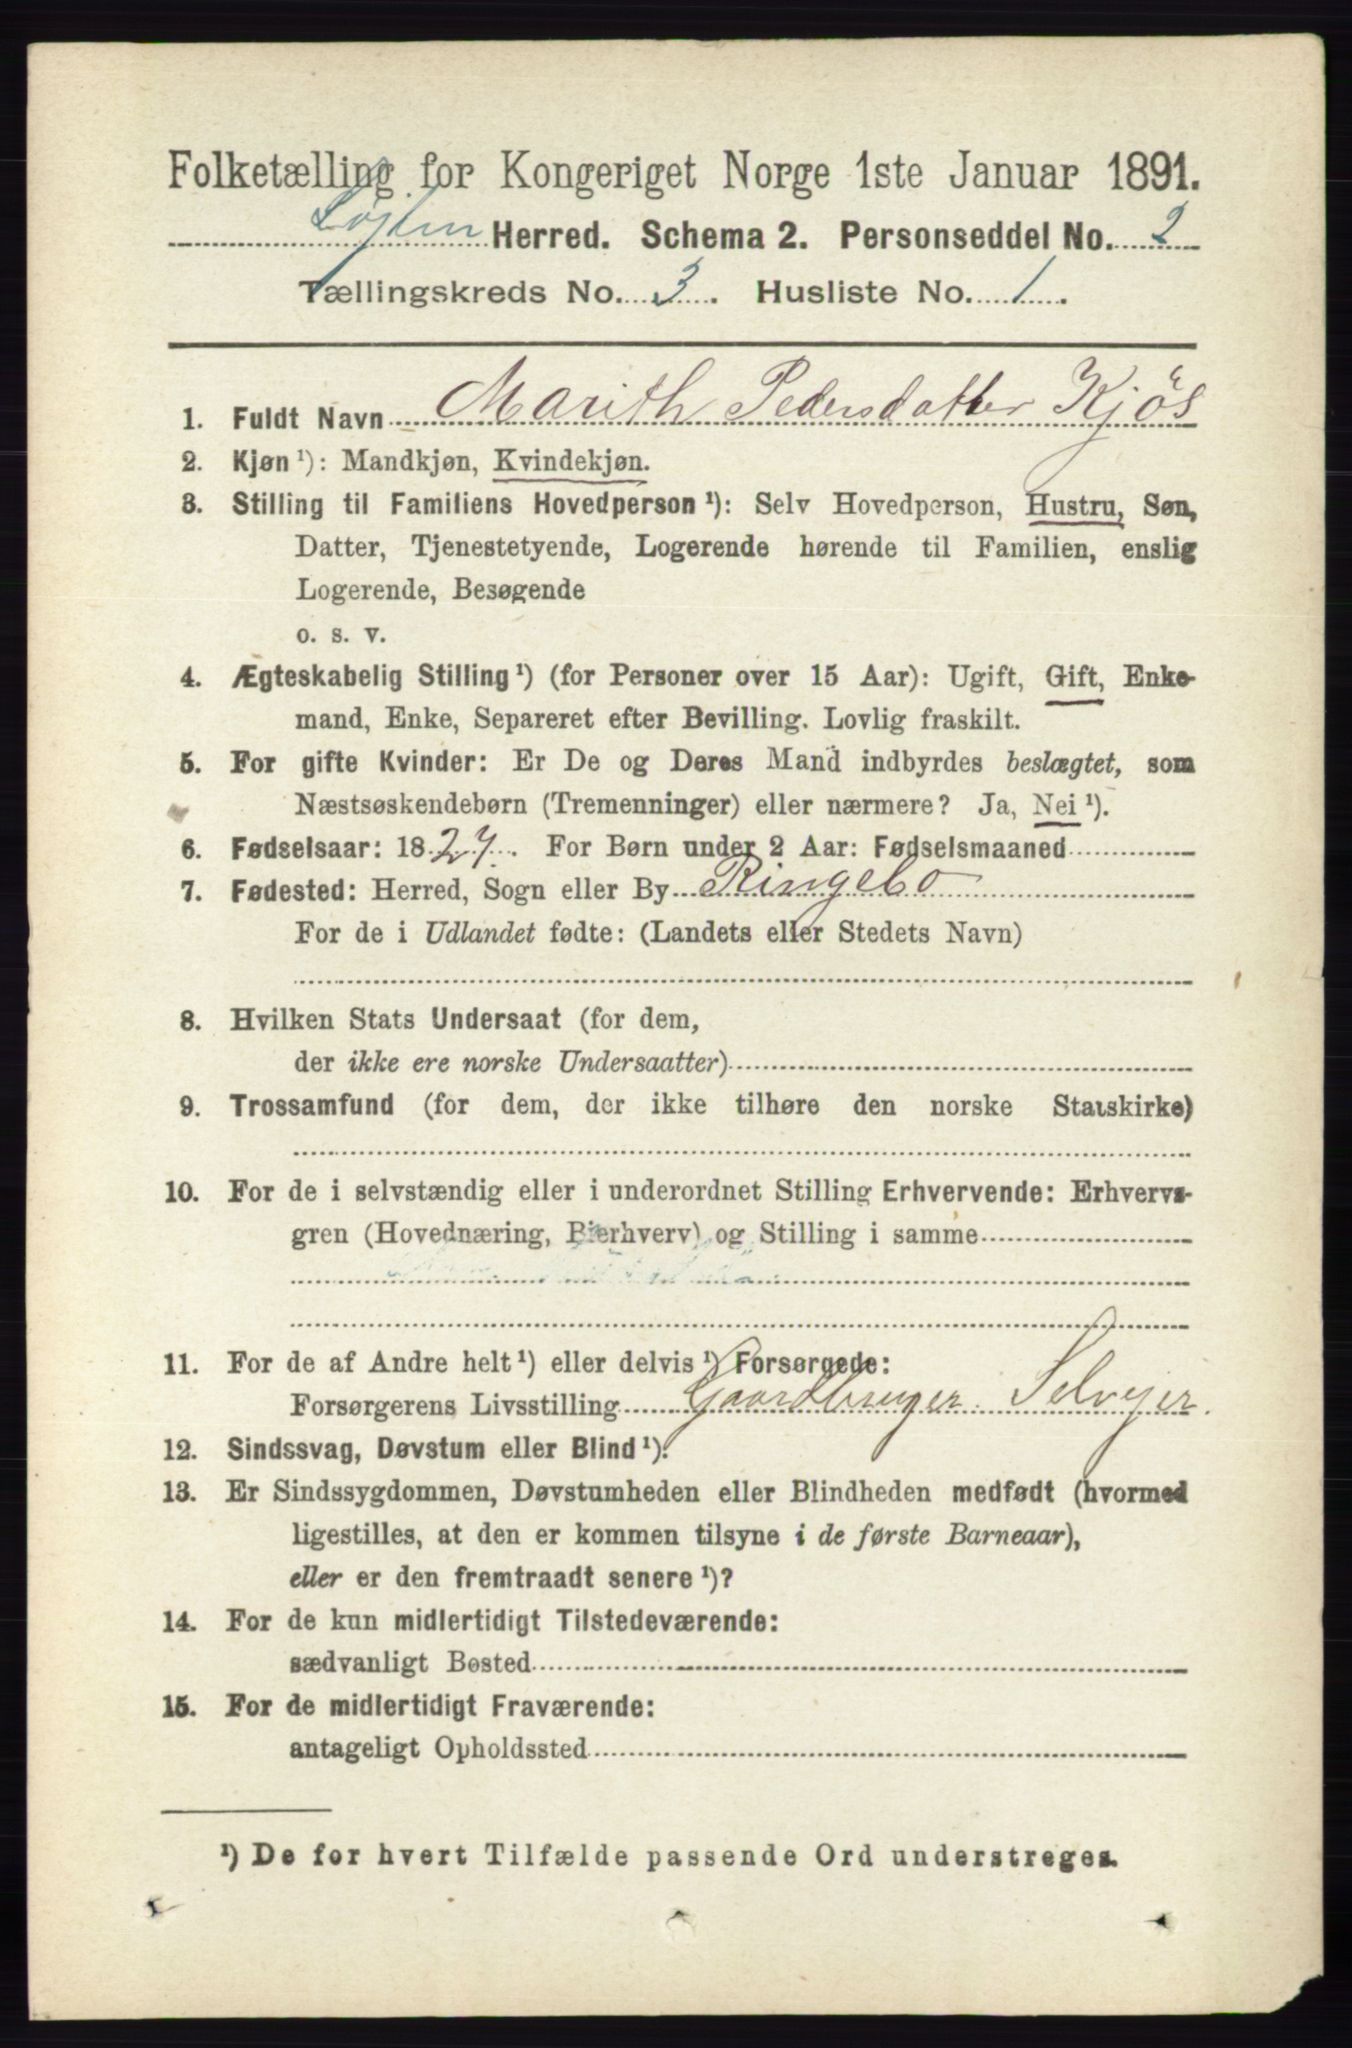 Folketælling for Kongeriget Norge 1ste Januar 1891.
Løjten Herred. Schema 2. Personseddel No. 2
Tællingskreds No. 3. Husliste No. 1.
1. Fuldt Navn Marith Pedersdatter Kjös
2. Kjøn ¹): Mandkjøn, Kvindekjøn.
3. Stilling til Familiens Hovedperson ¹): Selv Hovedperson, Hustru, Søn,
Datter, Tjenestetyende, Logerende hørende til Familien, enslig
Logerende, Besøgende
o. s. v.
4. Ægteskabelig Stilling ¹) (for Personer over 15 Aar): Ugift, Gift, Enke-
mand, Enke, Separeret efter Bevilling. Lovlig fraskilt.
5. For gifte Kvinder: Er De og Deres Mand indbyrdes beslægtet, som
Næstsøskendebørn (Tremenninger) eller nærmere? Ja, Nei ¹).
6. Fødselsaar: 1827. For Børn under 2 Aar: Fødselsmaaned
7. Fødested: Herred, Sogn eller By Ringebo
For de i Udlandet fødte: (Landets eller Stedets Navn)
8. Hvilken Stats Undersaat (for dem,
der ikke ere norske Undersaatter)
9. Trossamfund (for dem, der ikke tilhøre den norske Statskirke)
10. For de i selvstændig eller i underordnet Stilling Erhvervende: Erhvervs-
gren (Hovednæring, Bierhverv) og Stilling i samme
11. For de af Andre helt ¹) eller delvis ¹) Forsørgede:
Forsørgerens Livsstilling Gaardbruger Selvejer.
12. Sindssvag, Døvstum eller Blind ¹).
13. Er Sindssygdommen, Døvstumheden eller Blindheden medfødt (hvormed
ligestilles, at den er kommen tilsyne i de første Barneaar),
eller er den fremtraadt senere ¹)?
14. For de kun midlertidigt Tilstedeværende:
sædvanligt Bosted
15. For de midlertidigt Fraværende:
antageligt Opholdssted
¹) De for hvert Tilfælde passende Ord understreges.